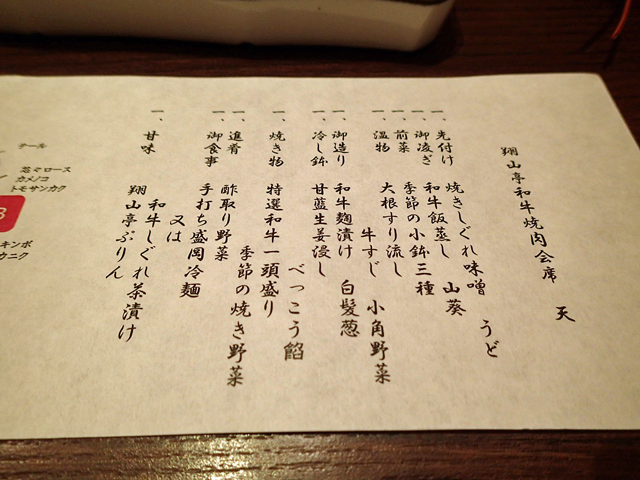 翔山亭和牛焼肉会席　天
一、先付け　焼きしぐれ味噌　うど
一、御凌ぎ　和牛飯蒸し　山葵
一、前菜　季節の小鉢三種
一、温物　大根すり流し
牛すじ　小角野菜
一、御造り　和牛麹漬け　白髪葱
一、冷し鉢　甘藍生姜浸し
べっこう餡
一、焼き物　特選和牛一頭盛り
季節の焼き野菜
一、進肴　酢取り野菜
一、御食事　手打ち盛岡冷麺
又は
和牛しぐれ茶漬け
一、甘味　翔山亭ぷりん
テール
芯々ロース
カメノコ
トモサンカク
3
キンボ
カニク